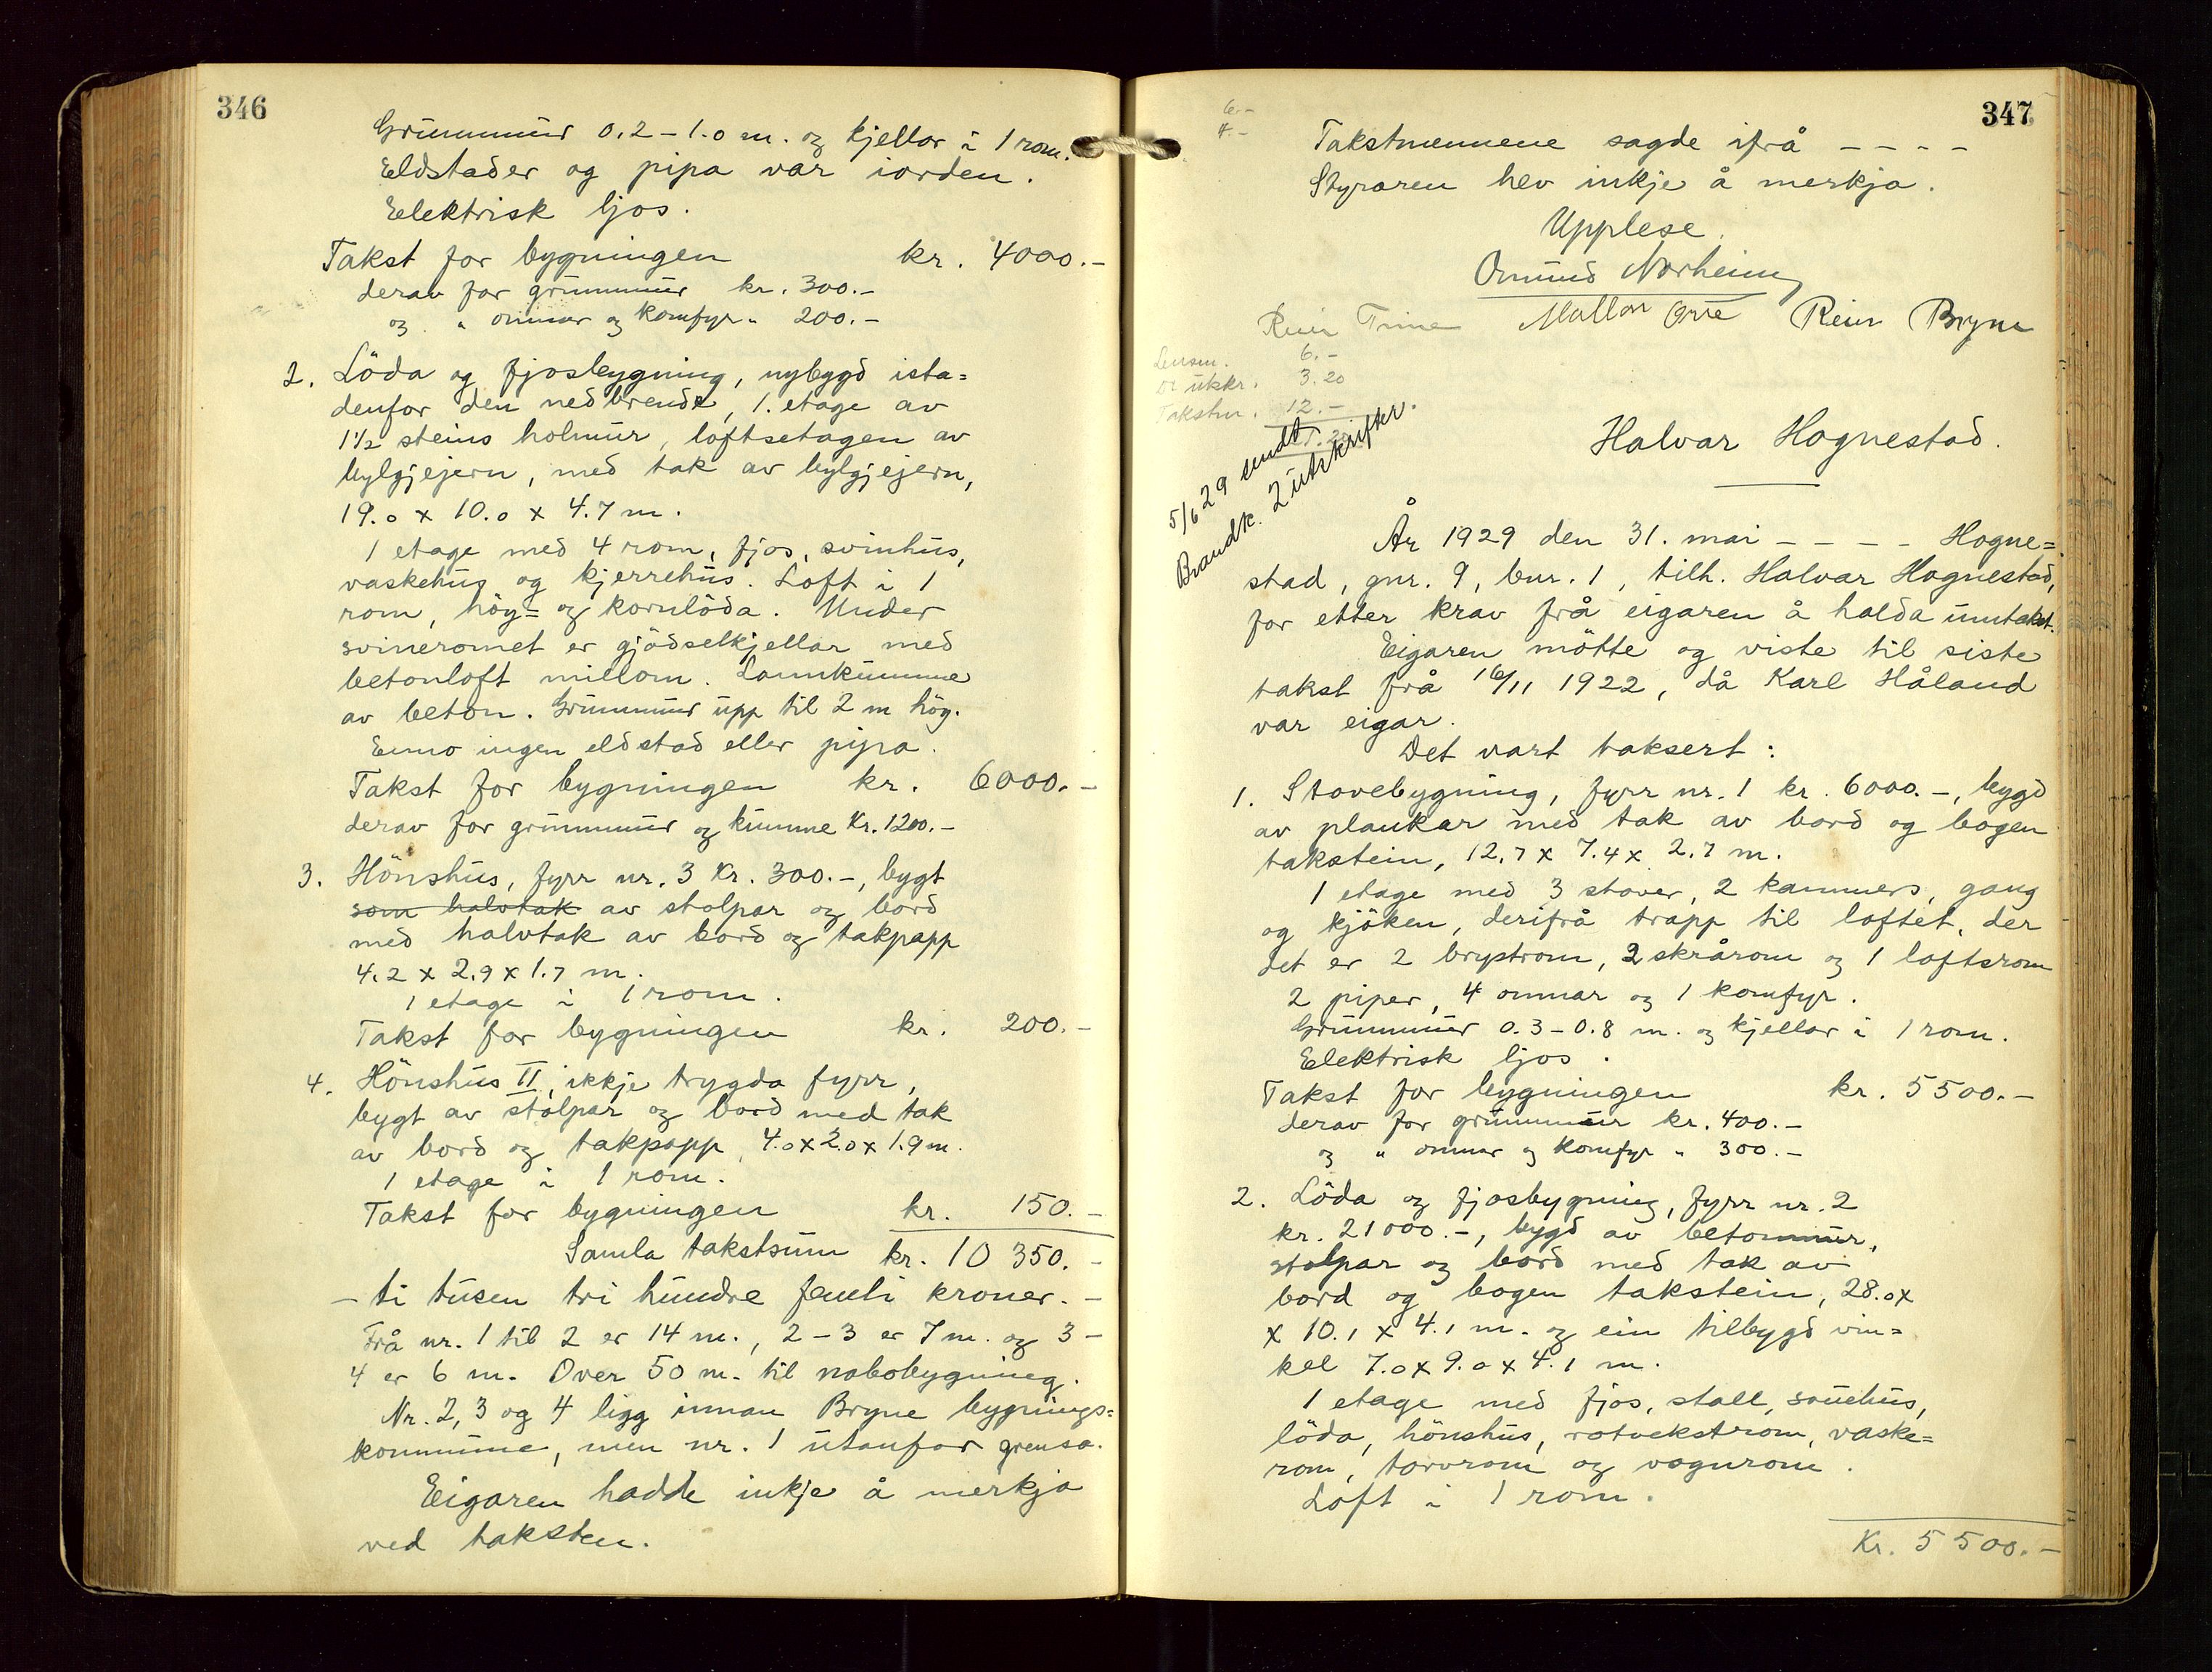 346
Grunnmur 0.2 – 1.0 m. og kjellar i 1 rom.
Eldstader og pipa var iorden.
Elektrisk ljos.
Takst for bygningen kr. 4000.–
derav for grunnmur kr. 300.–
og " omnar og komfyr " 200.–
2. Löda og fjosbygning, nybygd ista=
denfor den nedbrende, 1. etage av
1½ steins holmur, loftsetagen av
bylgjejern, med tak av bylgjejern,
19.0 x 10.0 x 4.7 m.
1 etage med 4 rom, fjos, svinhus,
vaskehus og kjerrehus. Loft i 1
rom, höy= og kornlöda. Under
svineromet er gjödselkjellar med
betonloft millom. Lannkumme
av beton. Grunnmur upp til 2 m hög.
Enno ingen eldstad eller pipa.
Takst for bygningen kr. 6000.–
derav for grunnmur og kumme Kr. 1200.–
3. Hönshus, fyrr nr. 3 Kr. 300.–, bygt
som halvtak av stolpar og bord
med halvtak av bord og takpapp
4.2 x 2.9 x 1.7 m.
1 etage i 1 rom.
Takst for bygningen kr. 200.–
4. Hönshus II, ikkje trygda fyrr,
bygt av stolpar og bord med tak
av bord og takpapp, 4.0 x 2.0 x 1.9 m.
1 etage i 1 rom.
Takst for bygningen kr. 150.–
Samla takstsum kr. 10 350.–
– ti tusen tri hundre femti kroner. –
Frå nr. 1 til 2 er 14 m., 2 – 3 er 7 m. og 3 –
4 er 6 m. Over 50 m. til nabobygning.
Nr. 2, 3 og 4 ligg innan Bryne bygnings=
kommune, men nr. 1 utanfor grensa.
Eigaren hadde inkje å merkja
ved taksten.
347
6.–
4.–
Takstmennene sagde ifrå – – – –
Styraren hev inkje å merkja.
Upplese.
Omund Norheim
Mallon Orre Rein Bryne
Rein Trine
Lensm. 6.–
utkr. 3.20
Takstm. 12.–
5/6 29 sendt
Brandk. 2 utskrifter.
Halvar Hognestad.
År 1929 den 31. mai – – – – Hogne=
stad, gnr. 9, bnr. 1, tilh. Halvar Hognestad,
for etter krav frå eigaren å halda umtakst.
Eigaren mötte og viste til siste
takst frå 16/11 1922, då Karl Håland
var eigar.
Det vart taksert:
1. Stovebygning, fyrr nr. 1 kr. 6000.–, bygd
av plankar med tak av bord og bogen
takstein, 12.7 x 7.4 x 2.7 m.
1 etage med 3 stover, 2 kammers, gang
og kjöken, derifrå trapp til loftet, der
det er 2 brystrom, 2 skrårom og 1 loftsrom
2 piper, 4 omnar og 1 komfyr.
Grunnmur 0.3 – 0.8 m. og kjellar i 1 rom.
Elektrisk ljos.
Takst for bygningen kr. 5500.–
derav for grunnmur kr. 400.–
og " omnar og komfyr " 300.–
2. Löda og fjosbygning, fyrr nr. 2
kr. 21000.–, bygd av betonmur,
stolpar og bord med tak av
bord og bogen takstein, 28.0 x
x 10.1 x 4.1 m. og ein tilbygd vin=
kel 7.0 x 9.0 x 4.1 m.
1 etage med fjos, stall, sauehus,
löda, hönshus, rotvekstrom, vaske=
rom, torvrom og vognrom.
Loft i 1 rom.
Kr. 5500.–